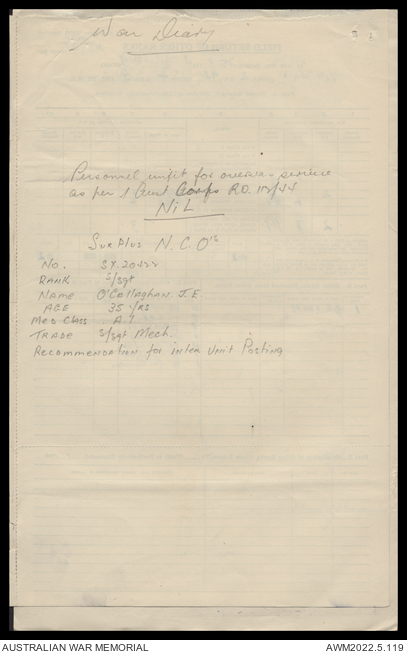 War Diary
Personnel unfit for oversea service
as per 1 Aust Corps R.O. 112/44
NIL
Surplus N.C.O's
No. SX.20422
RANK S/Sgt
NAME O'Callaghan. J.E.
AGE 35 yrs
Med Class A1
TRADE S/Sgt Mech.
Recommendation for inter unit Posting
AUSTRALIAN WAR MEMORIAL
AWM2022.5.119